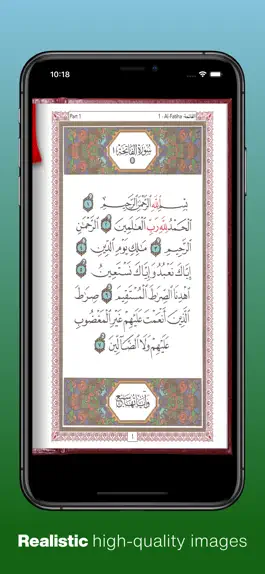 10:18
Part 1
1 - Al-Fatiha - الفاتحة
سُورَةُ الفَاتِحَةِ
بِسْمِ ٱللَّهِ ٱلرَّحْمَٰنِ ٱلرَّحِيمِ ١
ٱلْحَمْدُ لِلَّهِ رَبِّ ٱلْعَٰلَمِينَ ٢ ٱلرَّحْمَٰنِ
ٱلرَّحِيمِ ٣ مَٰلِكِ يَوْمِ ٱلدِّينِ ٤
إِيَّاكَ نَعْبُدُ وَإِيَّاكَ نَسْتَعِينُ ٥
ٱهْدِنَا ٱلصِّرَٰطَ ٱلْمُسْتَقِيمَ ٦ صِرَٰطَ
ٱلَّذِينَ أَنْعَمْتَ عَلَيْهِمْ غَيْرِ ٱلْمَغْضُوبِ
عَلَيْهِمْ وَلَا ٱلضَّآلِّينَ ٧
وآياتها سبع
1
Realistic high-quality images